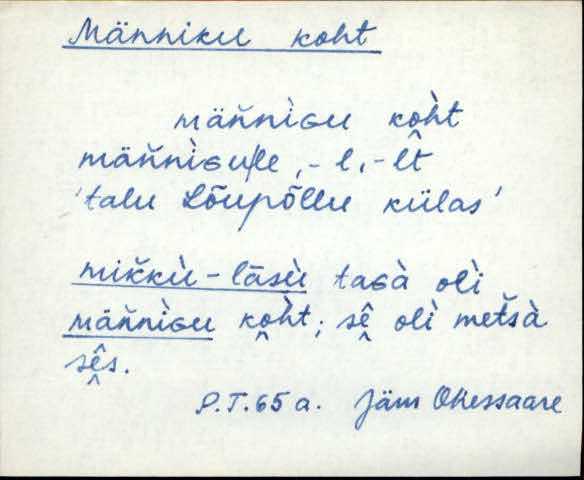 Männiku koht
män̆nìɢu ko̭ht
män̆nìɢu/le, -l, -l̂t
'talu Lõupõllu külas'
mik̆kù-lāsù taɢà olì
män̆nìɢu ko̭ht; sê̬ olì met̆sà
sê̬s.
P.T. 65 a. Jäm Ohessaare